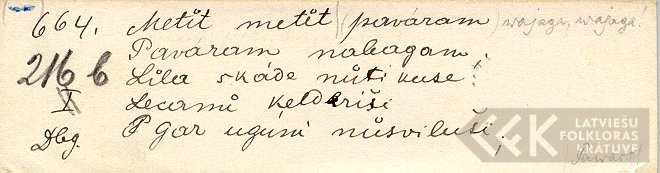 664. Metit metit (pavāram) wajaga, wajaga!
Pavāram nabagam;
216 b Lila skāde nūtikuse:
X Lecamū kelderīši
Dbg. P gar ugúni nūsviluši;
LATVIEŠU
FOLKLORAS
KRĀTUVE